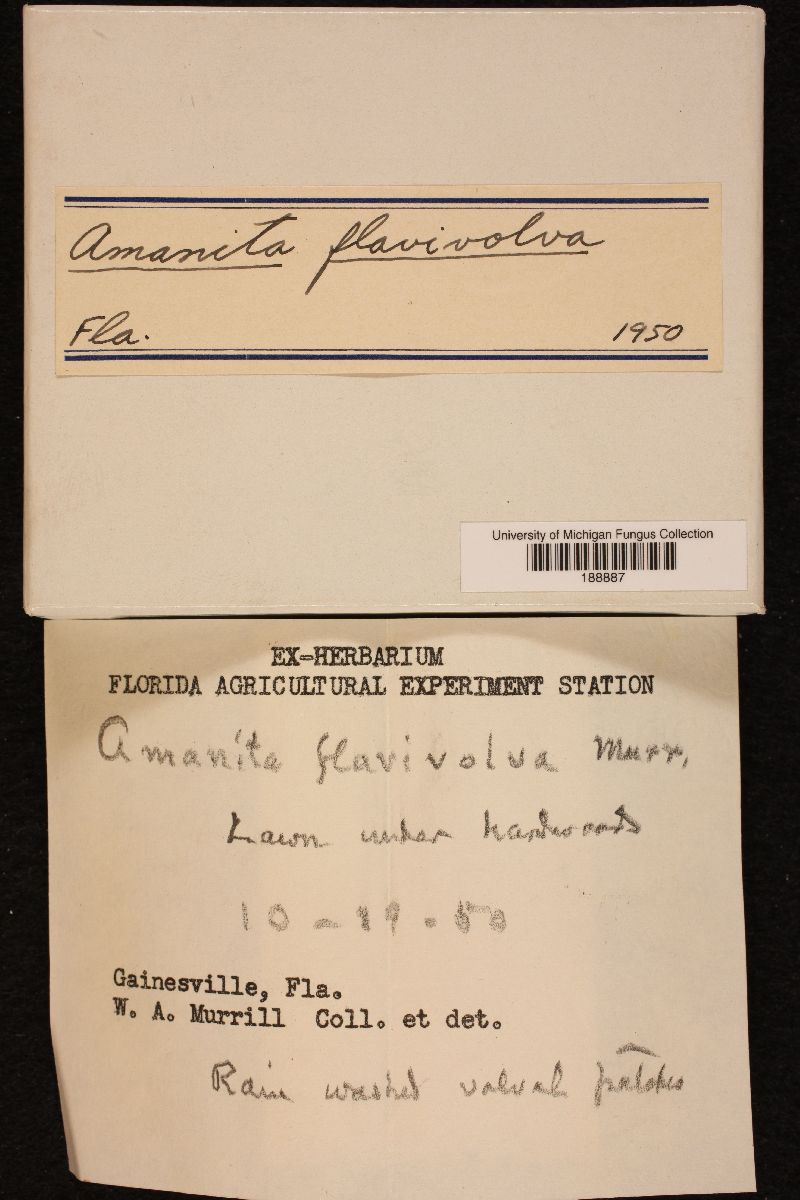 Amanita flavivolva
Fla. 1950
University of Michigan Fungus Collection
188887
EX-HERBARIUM
FLORIDA AGRICULTURAL EXPERIMENT STATION
Amanita flavivolva Murr.
Lawn under hardwoods
10-19-50
Gainesville, Fla.
W. A. Murrill Coll. et det.
Rain washed volval patches